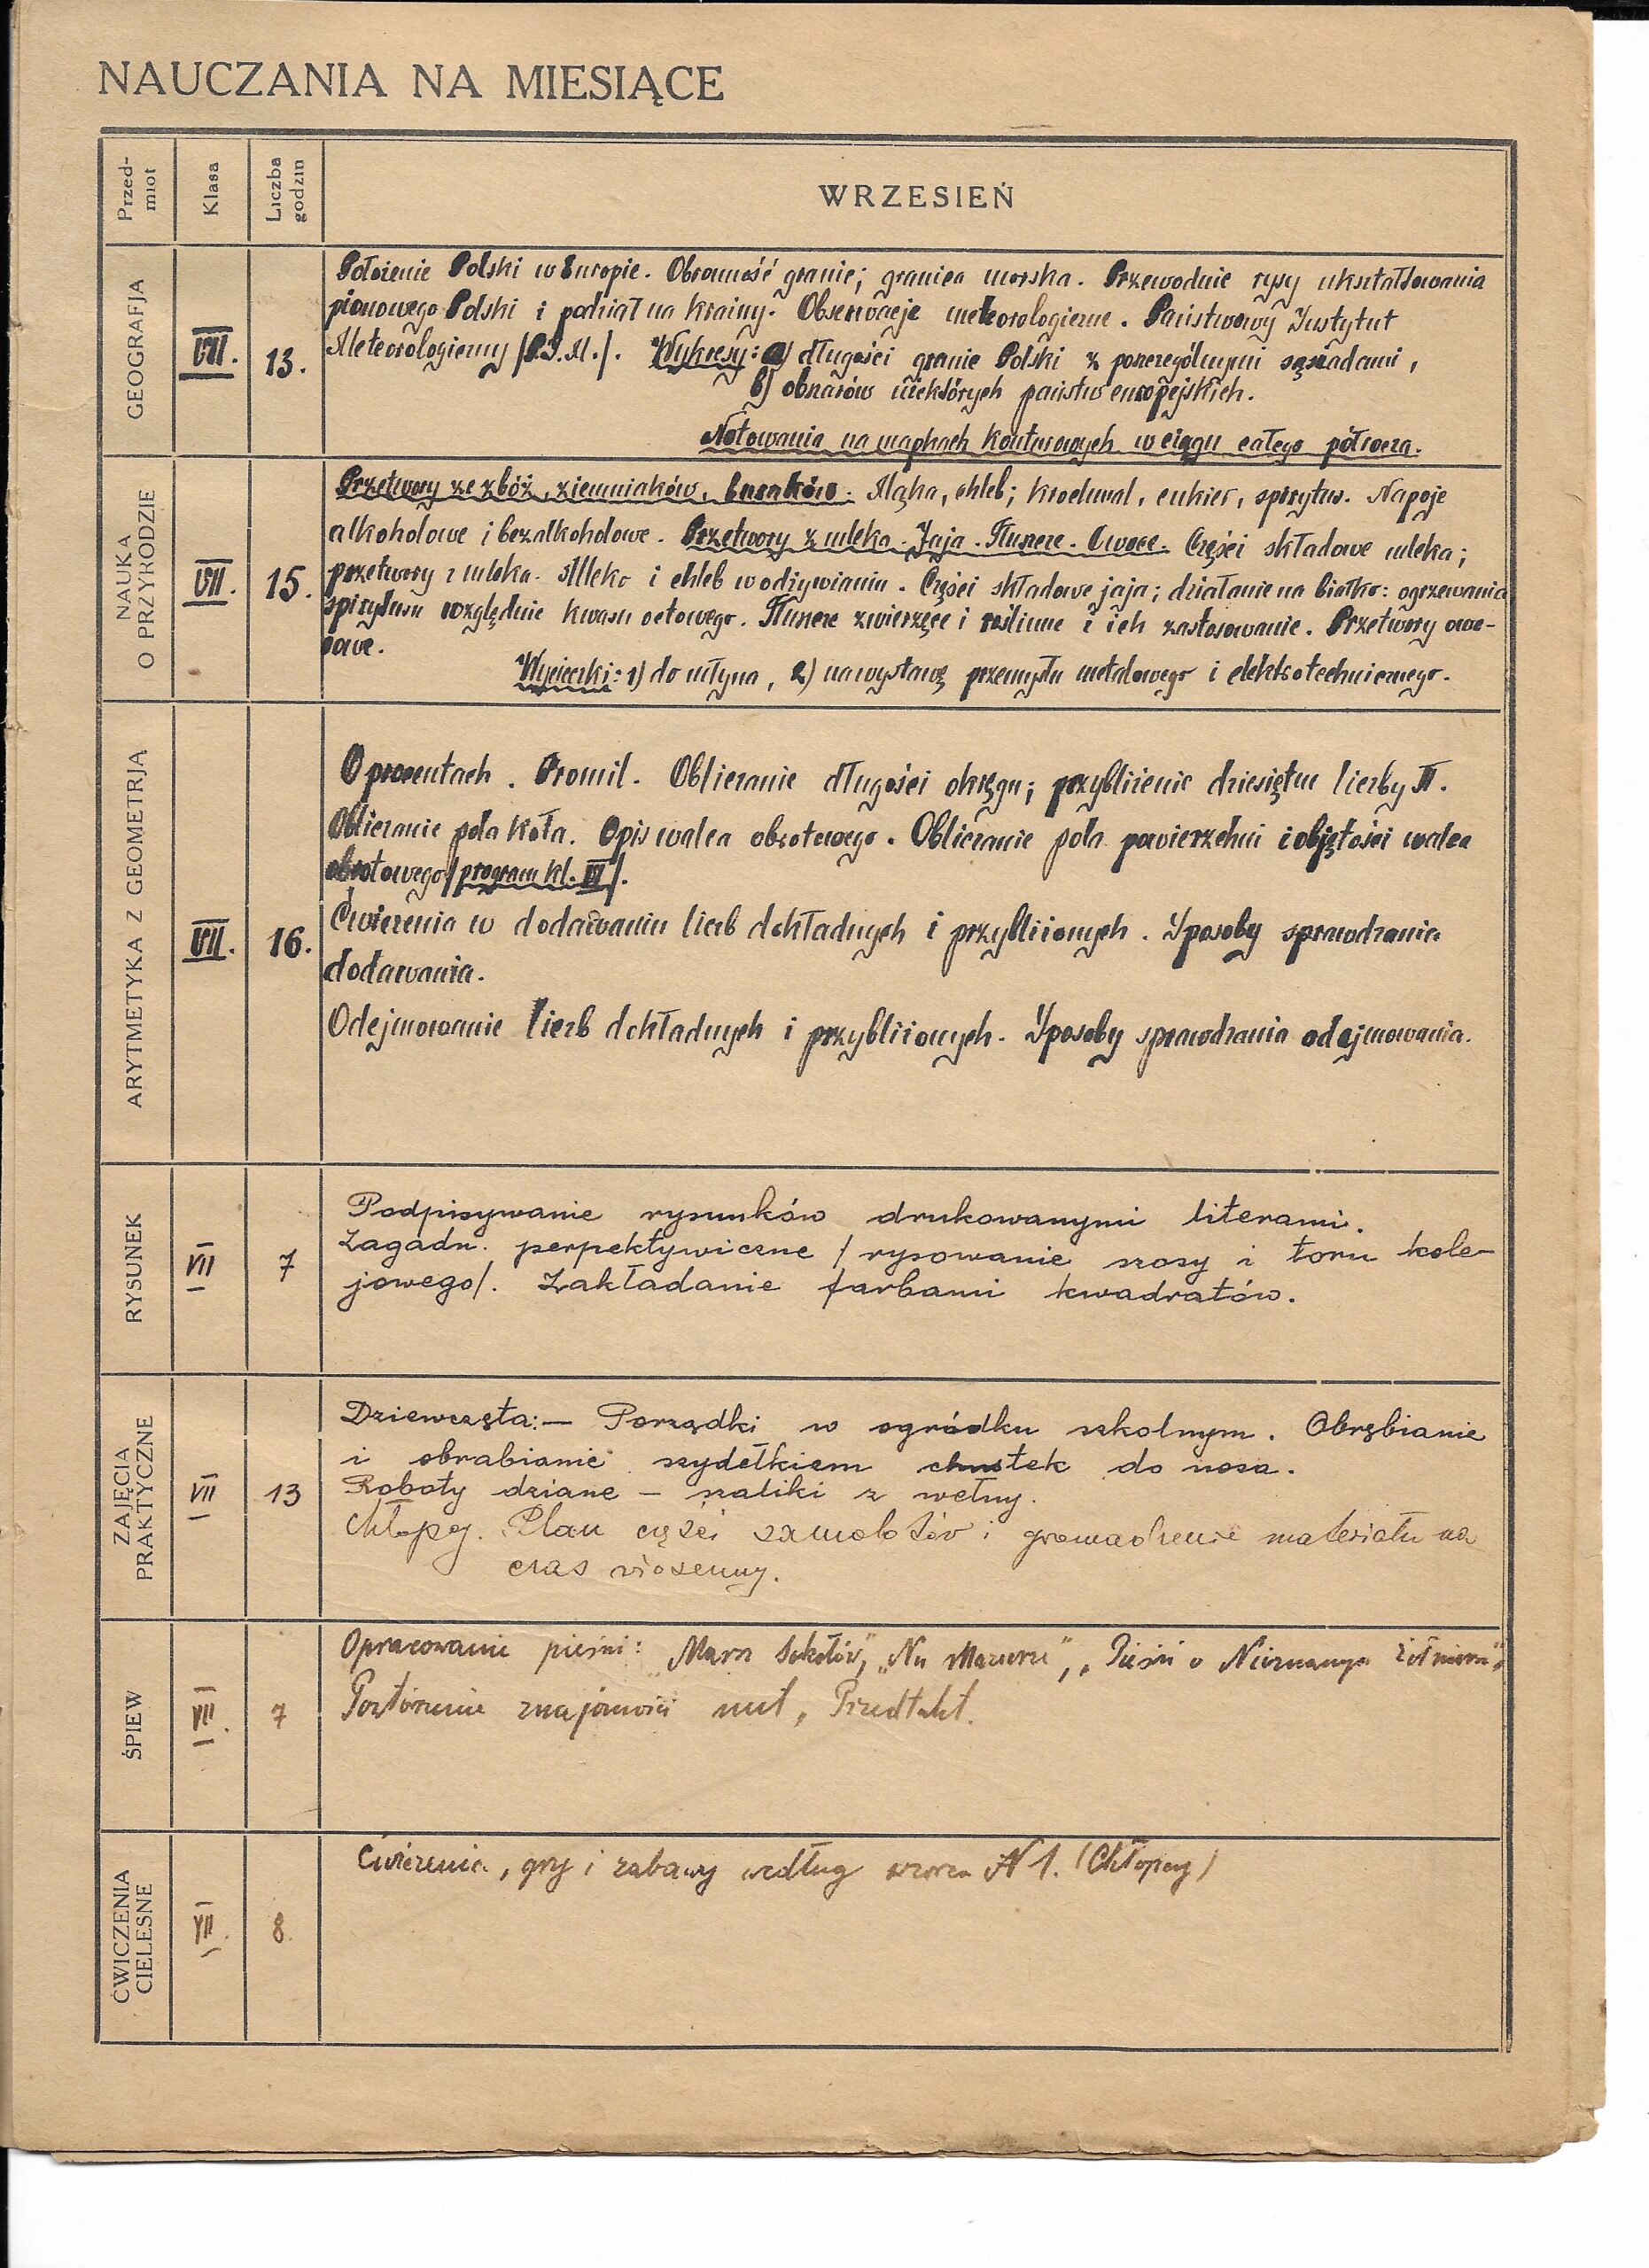 NAUCZANIA NA MIESIĄCE
Przed-
miot
Klasa
Liczba
godzin
WRZESIEŃ
GEOGRAFJA
VII.
13.
Położenie Polski w Europie. Obronność granic; granica morska. Przewodnie rysy ukształtowania
pionowego Polski i podział na krainy. Obserwacje meteorologiczne. Państwowy Instytut
Meteorologiczny /P.I.M./. Wykresy: a) długości granic Polski z poszczególnymi sąsiadami,
b) obszarów niektórych państw europejskich.
Notowania na mapkach konturowych w ciągu całego półrocza.
NAUKA
O PRZYRODZIE
VII.
15.
Przetwory ze zbóż, ziemniaków, buraków. Mąka, chleb; krochmal, cukier, spirytus. Napoje
alkoholowe i bezalkoholowe. Przetwory z mleka. Jaja. Tłuszcze. Owoce. Części składowe mleka;
przetwory z mleka. Mleko i chleb w odżywianiu. Części składowe jaja; działanie na białko: ogrzewania
spirytusu względnie kwasu octowego. Tłuszcze zwierzęce i roślinne i ich zastosowanie. Przetwory owo-
cowe.
Wycieczki: 1) do młyna, 2) na wystawę przemysłu metalowego i elektrotechnicznego.
ARYTMETYKA Z GEOMETRJĄ
VII.
16.
O procentach. Promil. Obliczanie długości okręgu; przybliżenie dziesiętne liczby π.
Obliczanie pola koła. Opis walca obrotowego. Obliczanie pola powierzchni i objętości walca
obrotowego /program kl. VI/.
Ćwiczenia w dodawaniu liczb dokładnych i przybliżonych. Sposoby sprawdzania
dodawania.
Odejmowanie liczb dokładnych i przybliżonych. Sposoby sprawdzania odejmowania.
RYSUNEK
VII
7
Podpisywanie rysunków drukowanymi literami.
Zagadn. perpektywiczne /rysowanie szosy i toru kole-
jowego/. Zakładanie farbami kwadratów.
ZAJĘCIA
PRAKTYCZNE
VII
13
Dziewczęta:— Porządki w ogródku szkolnym. Obrębianie
i obrabianie szydełkiem chustek do nosa.
Roboty dziane — szaliki z wełny.
Chłopcy. Plan części samolotów i gromadzenie materiału na
czas wiosenny.
ŚPIEW
VII.
7
Opracowanie pieśni: "Marsz Sokołów", "Na Mazurze", "Pieśń o Nieznanym Żołnierzu".
Powtórzenie znajomości nut, Przedtakt.
ĆWICZENIA
CIELESNE
VII.
8.
Ćwiczenia, gry i zabawy według wzoru N 1. (Chłopcy)